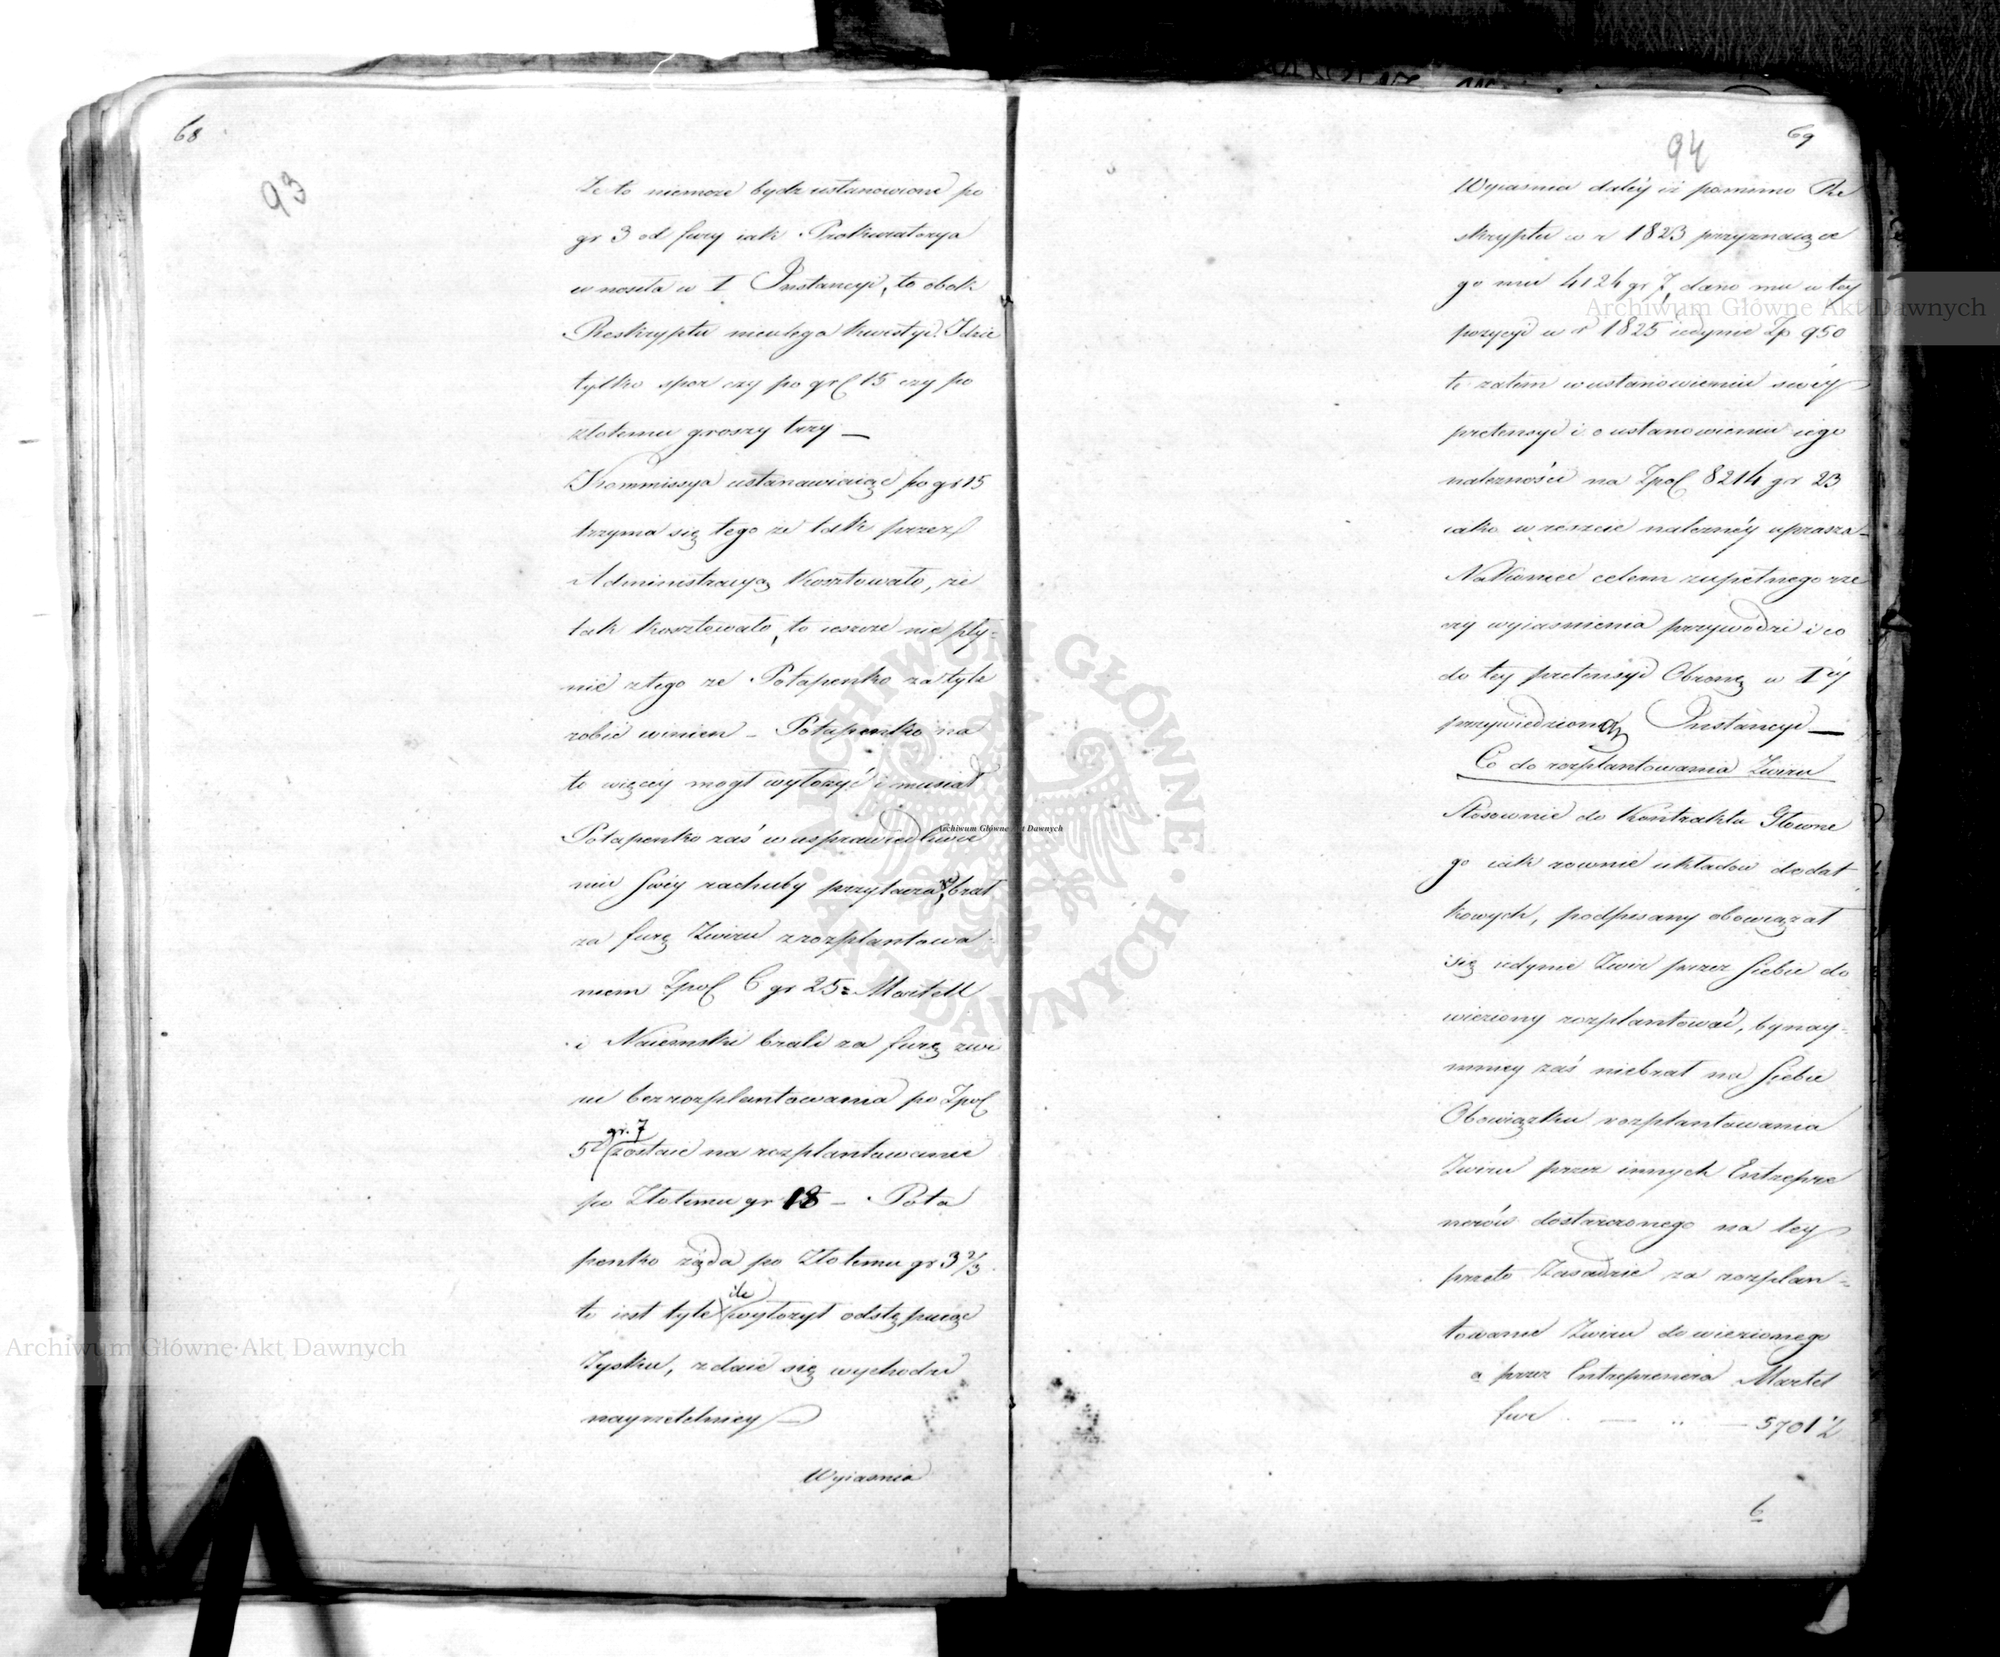 68
93
Że to niemoże bydz ustanowione po
gr 3 od fury iak Prokuratorya
wnosiła w I Instancyi, to obok
Reskryptu nieulega kwestyi. Idzie
tylko spor czy po gr 15 czy po
złotemu groszy trzy —
Kommissya ustanawiaiąc po gr 15
trzyma się tego że tak przez
Administracyą kosztowało, że
tak kosztowało, to ieszcze nie pły-
nie ztego że Potapenko za tyle
robić winien – Potapenko na
to więcey mogł wyłożyć i musiał
Potapenko zaś w usprawiedliwie
niu swéy rachuby przytacza, brał
za furę Żwiru z rozplantowa-
niem Zpol 6 gr 25 = Martell
i Naiemski brali za furę żwi
ru bez rozplantowania po Zpol
gr. 7
5 zostaie na rozplantowanie
po Złotemu gr 18 – Pota
penko żąda po Złotemu gr 3 2/3
ile
to iest tyle wyłożył odstępuiąc
Zysku, zdaie się wychodzi
nayrzetelniey —
Wyiasnia
69
94
Wyiasnia daléy iż pomimo Re
skryptu w r 1823 przyznaiące
go mu 4124 gr 7, dano mu w tey
pozycyi w r 1825 iedynie Zp 950
to zatem w ustanowieniu swéy
pretensyi i o ustanowienie iego
należności na Zpol 8214 gr 23
iako w reszcie należnéy uprasza –
Nakoniec celem zupełnego rze
czy wyiasnienia przywodzi i co
do tey pretensyi Obronę w I éy
przywiedzioną Instancyi —
Co do rozplantowania Żwiru
Stosownie do Kontraktu Głowne
go iak rownie układow dodat
kowych, podpisany obowiązał
się iedynie Żwir przez siebie do
wieziony rozplantować, bynay-
mniey zaś niebrał na siebie
Obowiązku rozplantowania
Żwiru przez innych Entrepre
nerów dostarczonego na tey
przeto Zasadzie za rozplan-
towanie Żwiru dowiezionego
a przez Entreprenera Martel
fur — „ — 5701 1/2
6
Archiwum Główne Akt Dawnych
Archiwum Główne Akt Dawnych
Archiwum Główne Akt Dawnych
ARCHIWUM GŁÓWNE · AKT DAWNYCH ·